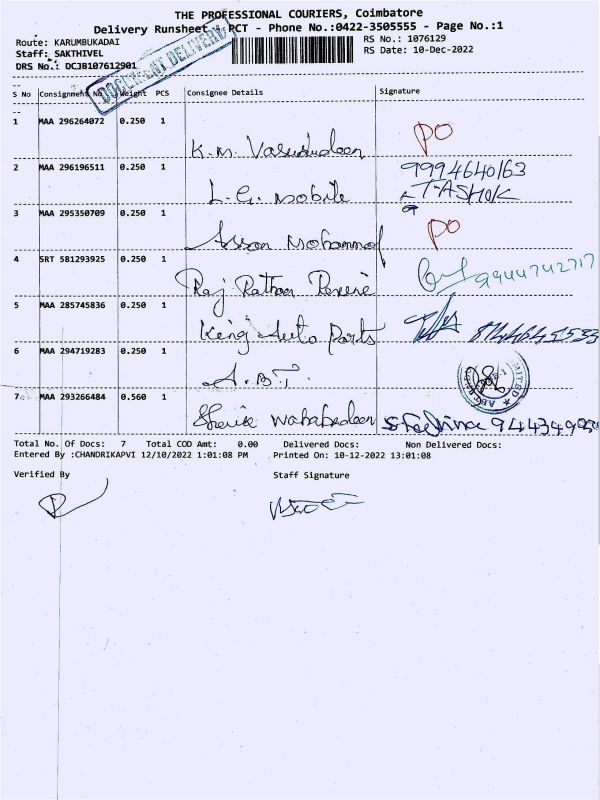 THE PROFESSIONAL COURIERS, Coimbatore
Delivery Runsheet : PCT - Phone No.:0422-3505555 - Page No.:1
Route: KARUMBUKADAI
RS No.: 1076129
Staff: SAKTHIVEL
RS Date: 10-Dec-2022
DRS No.: DCJB107612901
DOCUMENT DELIVERY
S No Consignment No Weight PCS Consignee Details Signature
1 MAA 296264072 0.250 1 PO
K.M.
2 MAA 296196511 0.250 1 9994640163
L.G. Mobile T-ASHOK
3 MAA 295350709 0.250 1 PO
Mohammed
4 SRT 581293925 0.250 1 9944742717
Raj Rathna
5 MAA 285745836 0.250 1
King Auto Parts
6 MAA 294719283 0.250 1
A.B.T.
7 MAA 293266484 0.560 1
Total No. Of Docs: 7 Total COD Amt: 0.00 Delivered Docs: Non Delivered Docs:
Entered By :CHANDRIKAPVI 12/10/2022 1:01:08 PM Printed On: 10-12-2022 13:01:08
Verified By Staff Signature